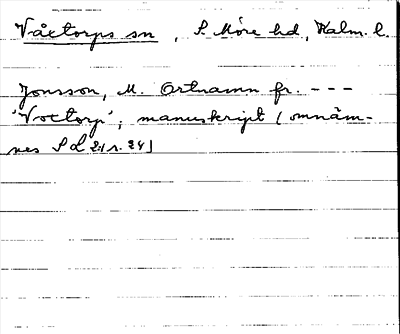 Våctorps sn, S. Möre hd, Kalm. l.
Jonsson, M. Ortnamn fr. - - -
'Voctorp'; manuskript (omnäm-
nes Sd 2:1 s. 24)